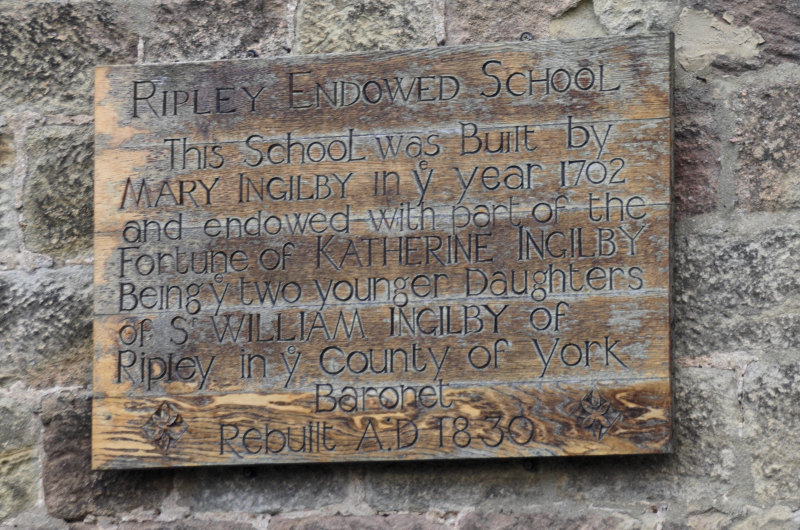 RIPLEY ENDOWED SCHOOL
This SCHOOL was Built by
MARY INGILBY in yͤ year 1702
and endowed with part of the
Fortune of KATHERINE INGILBY
Being yͤ two younger Daughters
of Sʳ WILLIAM INGILBY of
Ripley in yͤ County of York
Baronet
Rebuilt A.D 1830